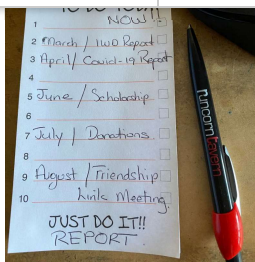 NOW!!
1
2 March / IWD Report
3 April / Covid-19 Report
4
5 June / Scholarship
6
7 July / Donations.
8
9 August / Friendship
10 Link Meeting.
JUST DO IT!!
REPORT
runcorn tavern